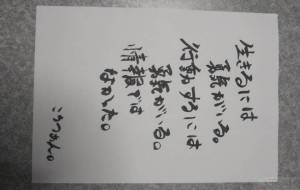 生きるには
勇気がいる。
行動するには
勇気がいる。
情報では
なかった。